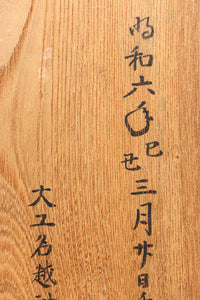 明和六年巳丑三月廿日
大工名越